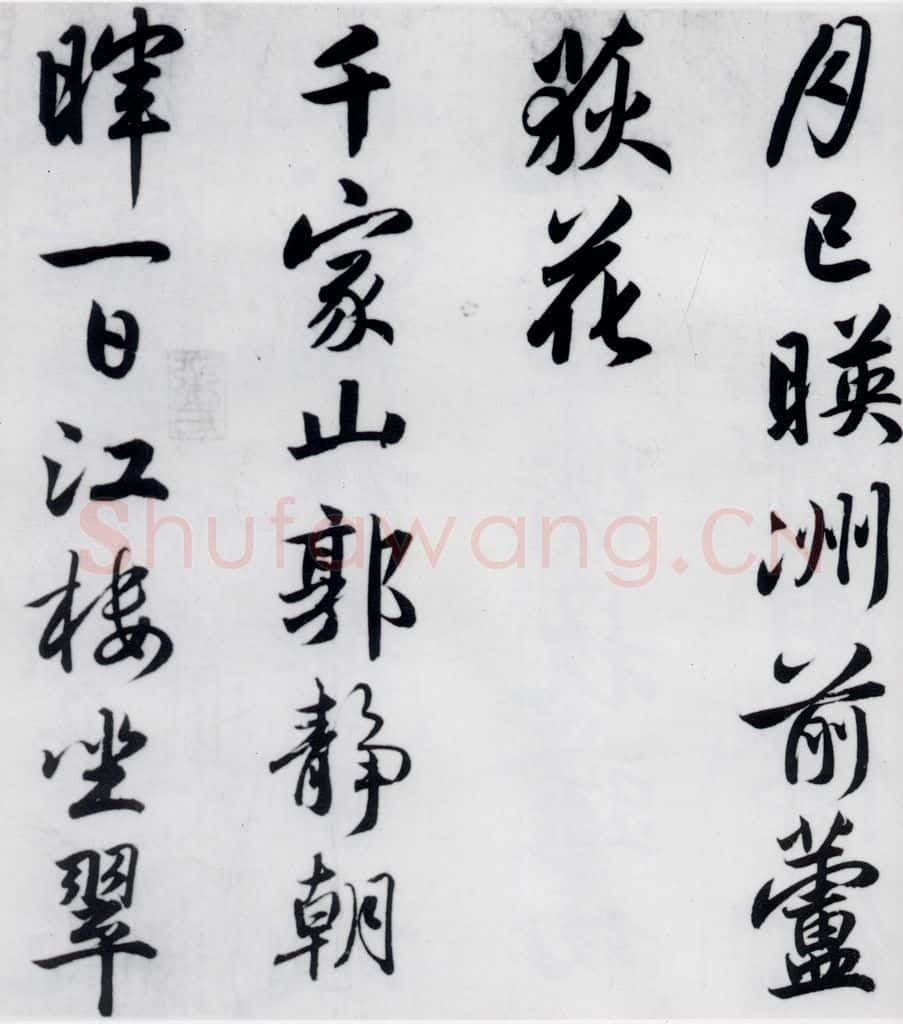 月已暎洲前蘆
荻花
千家山郭靜朝
暉一日江樓坐翠
Shufawang.CN